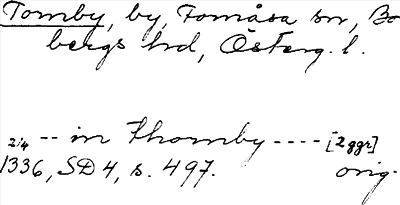 Tomby, by, Fomåsa sn, Bo-
bergs hd, Österg. l.
2/4 -- in Thomby ---- [2 ggr]
1336, SD 4, s. 497. orig.